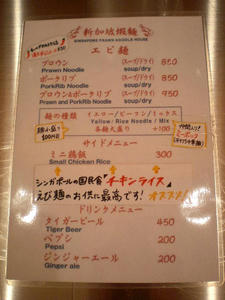 新加坡蝦麺
SINGAPORE PRAWN NOODLE HOUSE
エビ麺
プロウン (スープ/ドライ) 850
Prawn Noodle soup/dry
ポークリブ (スープ/ドライ) 850
PorkRib Noodle soup/dry
プロウン&ポークリブ (スープ/ドライ) 950
Prawn and PorkRib Noodle soup/dry
麺の種類 イエロー/ビーフン/ミックス
Yellow/Rice Noodle/Mix
各麺大盛り +100
サイドメニュー
ミニ鶏飯 300
Small Chicken Rice
シンガポールの国民食「チキンライス」
えび麺のお供に最高です! オススメ!
ドリンクメニュー
タイガービール 450
Tiger Beer
ペプシ 200
Pepsi
ジンジャーエール 200
Ginger ale